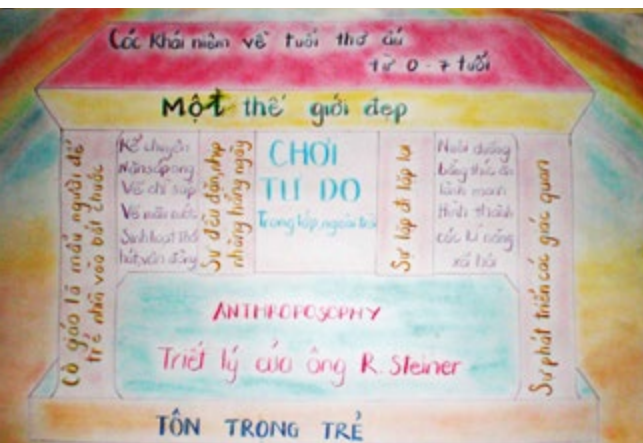 Các Khái niệm về tuổi thơ ấu
từ 0 - 7 tuổi
Một thế giới đẹp
Cô giáo là mẫu người để
trẻ nhìn vào bắt chước
Kể chuyện
Nặn sáp ong
Vẽ chì sáp
Vẽ màu nước
Sinh hoạt thơ
hát, vận động
Sự đều đặn, nhịp
nhàng hằng ngày
CHƠI
TỰ DO
Trong lớp, ngoài trời
Sự lặp đi lặp lại
Nuôi dưỡng
bằng thức ăn
lành mạnh
Hình thành
các kĩ năng
xã hội
Sự phát triển các giác quan
ANTHROPOSOPHY
Triết lý của ông R. Steiner
TÔN TRỌNG TRẺ